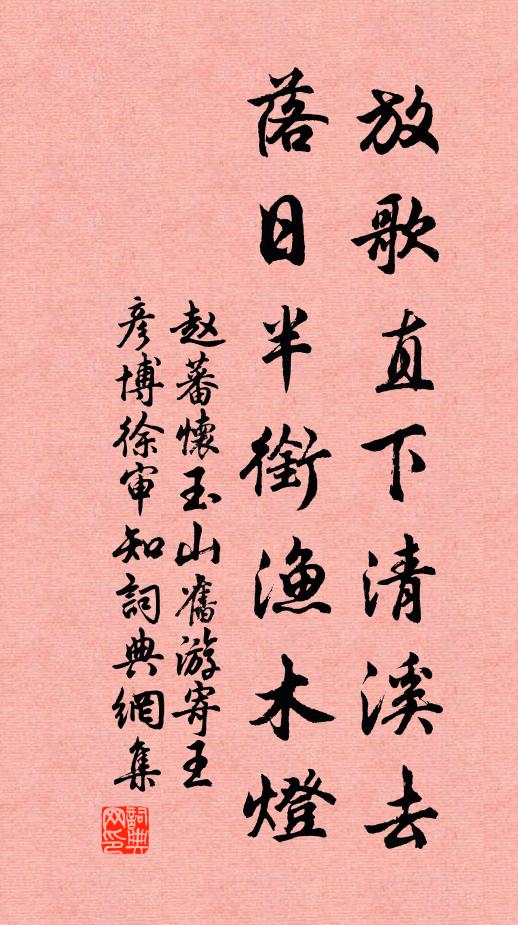 放歌直下清溪去
落日半銜漁木燈
赵蕃懷玉山舊游寄王
彦博徐审知詞典網集
詞典
网印